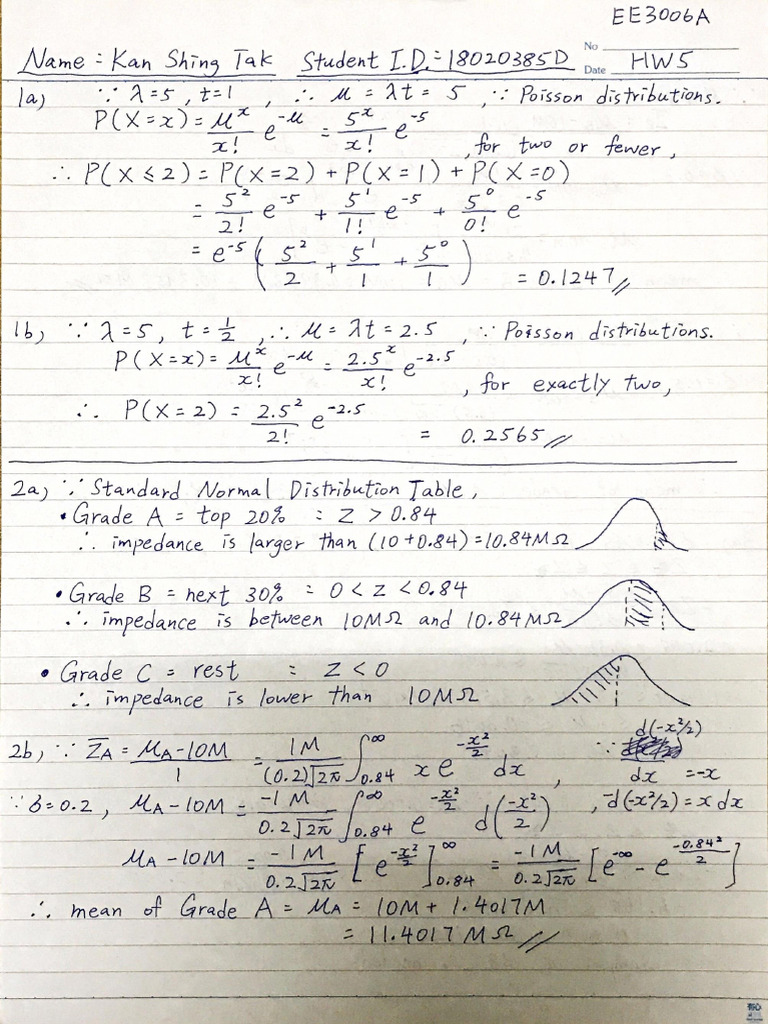 EE3006A
Name = Kan Shing Tak Student I.D.= 18020385D No
Date HW5
1a) ∵ λ=5, t=1, ∴ μ = λt = 5, ∵ Poisson distributions.
P(X=x) = μ^x/x! e^-μ = 5^x/x! e^-5
, for two or fewer,
∴ P(X≤2) = P(X=2) + P(X=1) + P(X=0)
= 5^2/2! e^-5 + 5^1/1! e^-5 + 5^0/0! e^-5
= e^-5 (5^2/2 + 5^1/1 + 5^0/1) = 0.1247 //
1b) ∵ λ=5, t=1/2, ∴ μ = λt = 2.5, ∵ Poisson distributions.
P(X=x) = μ^x/x! e^-μ = 2.5^x/x! e^-2.5
, for exactly two,
∴ P(X=2) = 2.5^2/2! e^-2.5
= 0.2565 //
2a) ∵ Standard Normal Distribution Table,
• Grade A = top 20% : Z > 0.84
∴ impedance is larger than (10+0.84)=10.84MΩ
• Grade B = next 30% = 0 < Z < 0.84
∴ impedance is between 10MΩ and 10.84MΩ
• Grade C = rest : Z < 0
∴ impedance is lower than 10MΩ
2b) ∵ Z̄A = (μA-10M)/1 = 1M/((0.2)√2π) ∫0.84^∞ x e^(-x²/2) dx, ∵ d(-x²/2)/dx = -x
∵ δ=0.2, μA-10M = -1M/(0.2√2π) ∫0.84^∞ e^(-x²/2) d(-x²/2), -d(-x²/2) = x dx
μA-10M = -1M/(0.2√2π) [e^(-x²/2)]0.84^∞ = -1M/(0.2√2π) [e^-∞ - e^(-0.84²/2)]
∴ mean of Grade A = μA = 10M + 1.4017M
= 11.4017 MΩ //